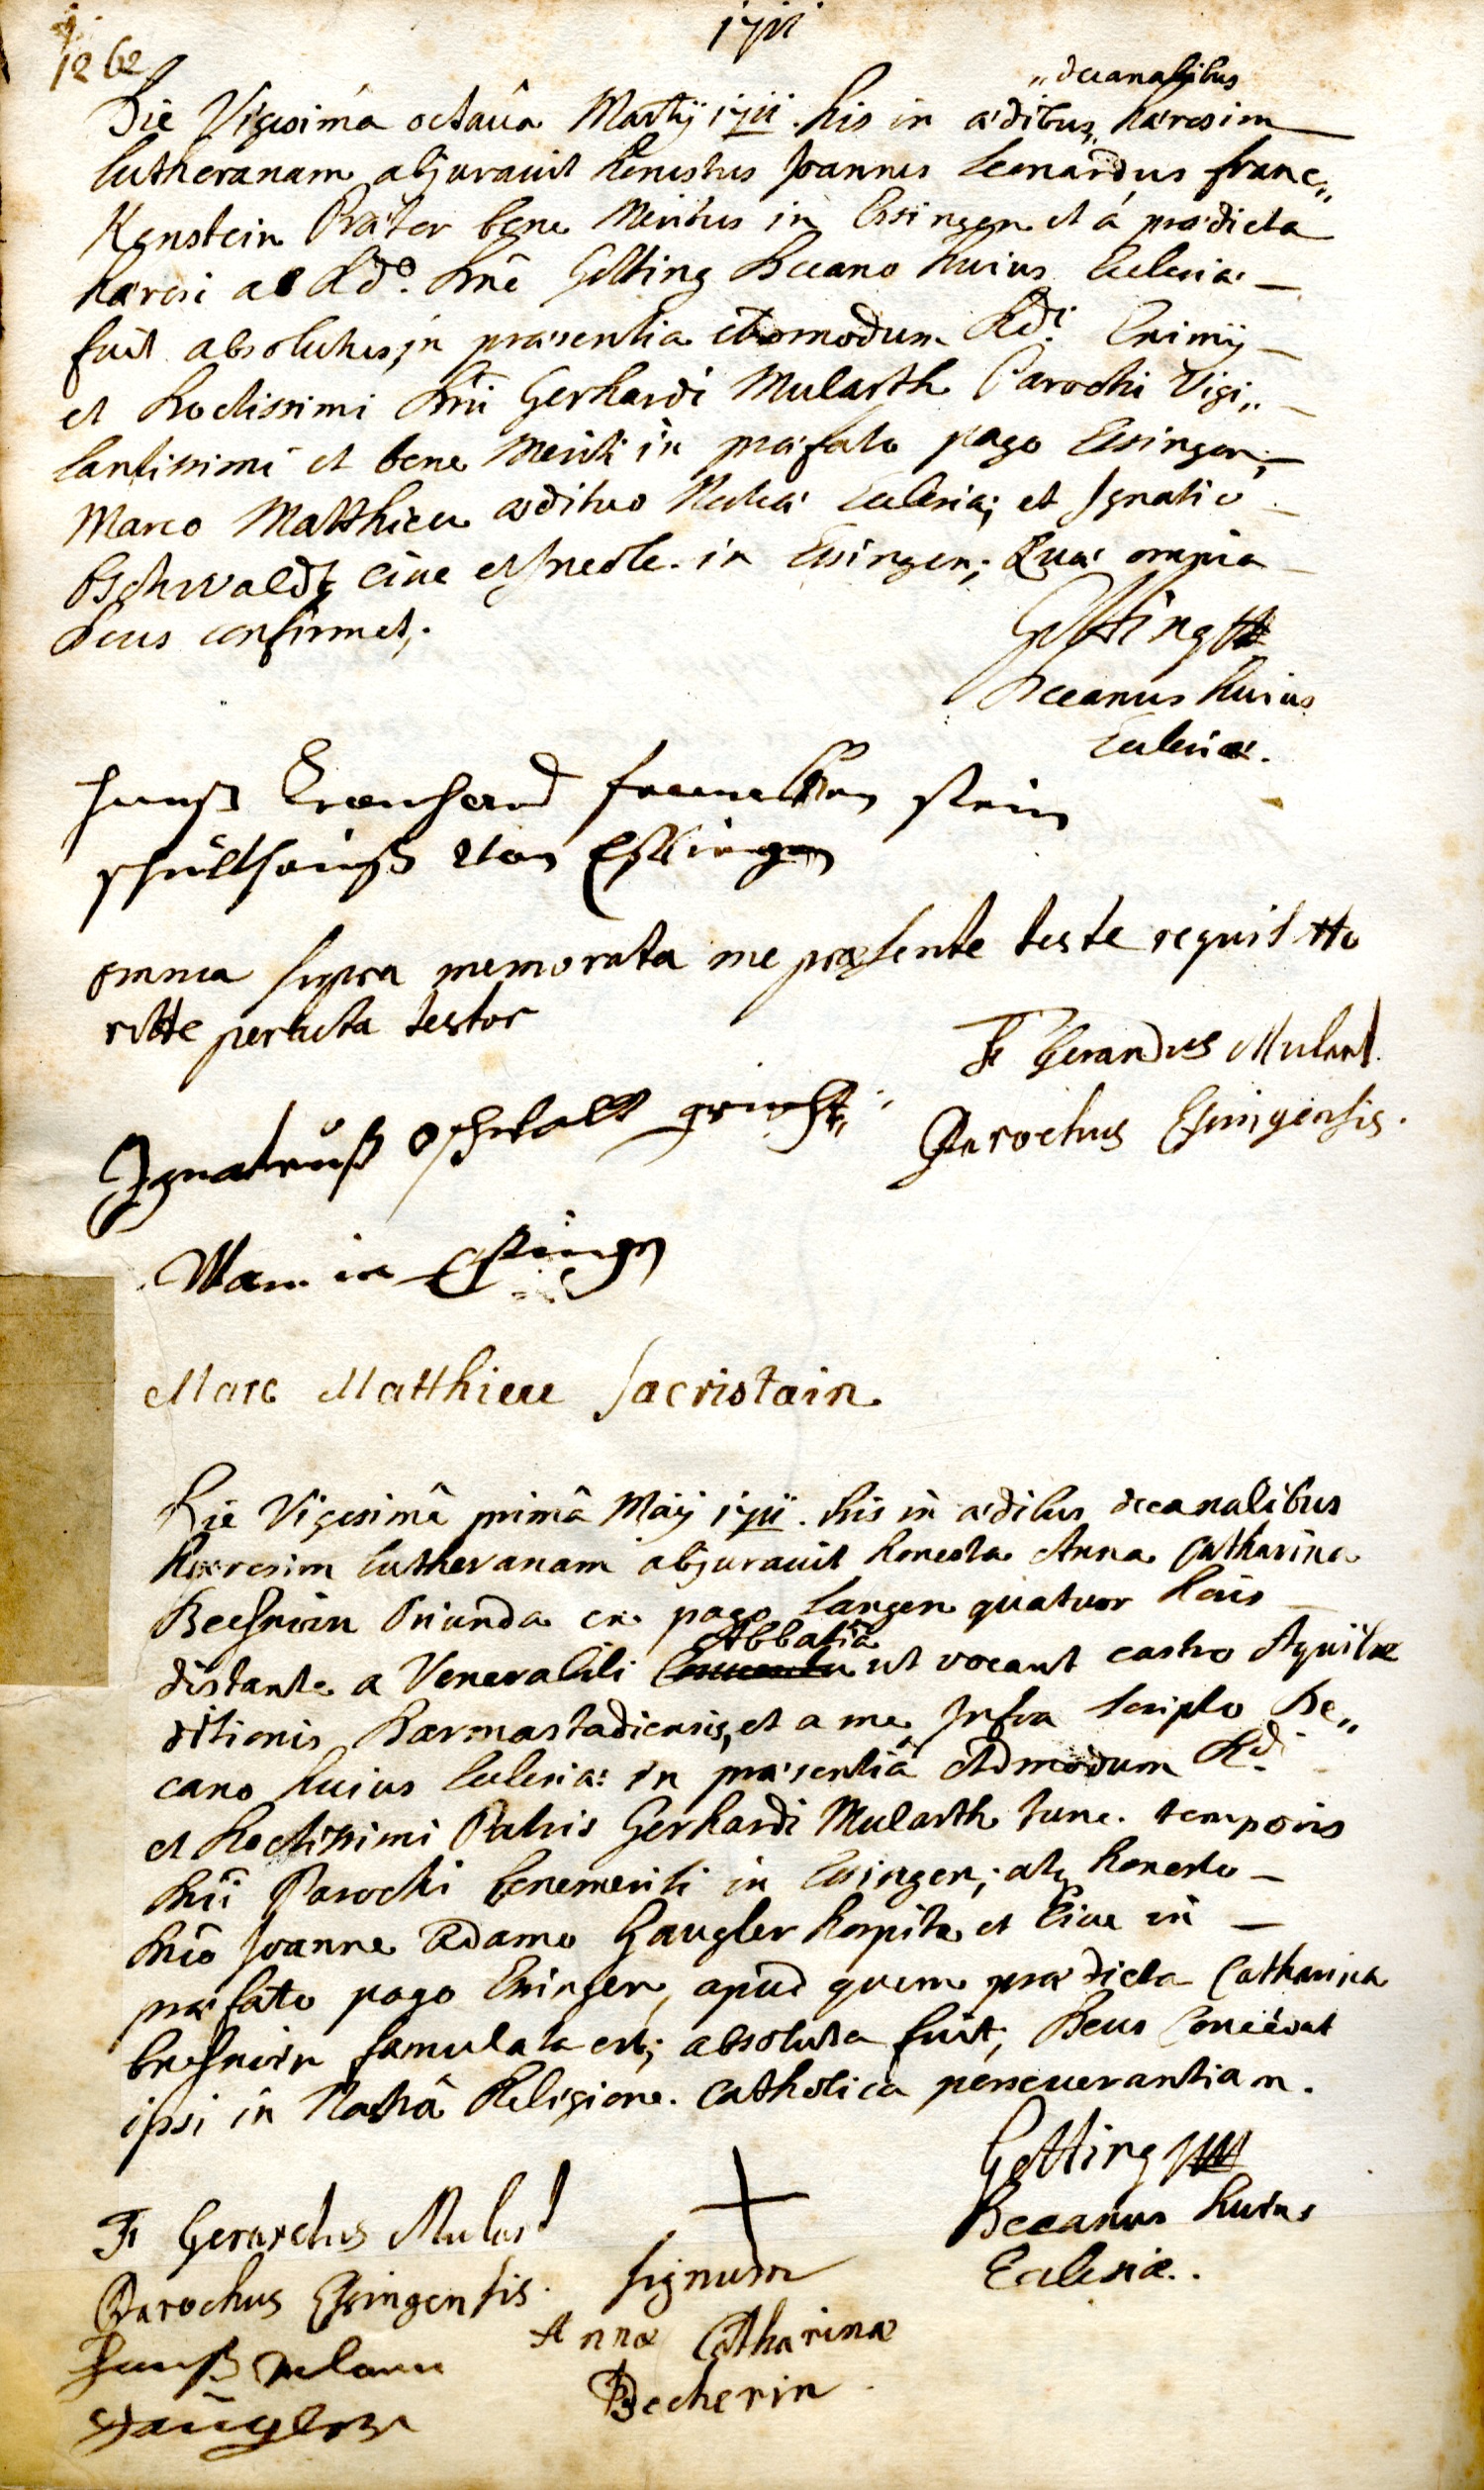 1711
1262
„decanalibus
Die Vigesimâ octauâ Martij 1711. his in ædibus, hæresim
lutheranam abjurauit honestus Joannes Leonardus franc„
Kenstein Prætor bene Meritus in Essingen et á prædicta
hæresi a Rdo. Dnô Gotting Decano huius Eclesiæ
fuit absolutus, in præsentia admodum Rdi. Eximij
et Doctissimi Dnî Gerhardi Mularth Parochi Vigi„
lantissimi et bene Meriti in præfato pago Essingen;
Marco Matthieu ædituo Nostræ Eclesiæ; et Ignatio
Oschwaldt ciue et incole in Essingen; Quæ omnia
Deus confirmet;
Gotting
Decanus huius
Eclesiæ.
Hanß Leonhard francken stein
schultheiß von Essingen
omnia supra memorata me præsente teste requisitto
ritte peracta testor
Fr Gerardus Mulart.
Parochus Essingensis.
Ignatiuß oschwalt gericht„
Man in Essingen
Marc Matthieu Sacristain
Die Vigesimâ primâ Maij 1711. his in ædibus decanalibus
hæresim lutheranam abjurauit honesta Anna Catharina
Becherin Oriunda ex pago Langen quatuor horis
Abbatiâ
distante a Venerabili ut vocant castro Aquilæ
ditionis Darmastadiensis, et a me Infra scripto De„
cano huius Eclesiæ: in præsentiâ Admodum Rdi.
et Doctissimi Patris Gerhardi Mularth tunc temporis
Dnî Parochi benemeriti in Essingen; atq honesto
Dnô Joanne Adamo Gaugler hospite et Ciue in
præfato pago Essingen, apud quem prædicta Catharina
becherin famulata est; absoluta fuit; Deus Concedat
ipsi in Nostrâ Religione Catholica perseuerantiam.
Gotting
Decanus huius
Eclesiæ.
Fr Gerardus Mulart
Parochus Essingensis.
signum
Annæ Catharinæ
Becherin
Hanß Adam
Gaugler